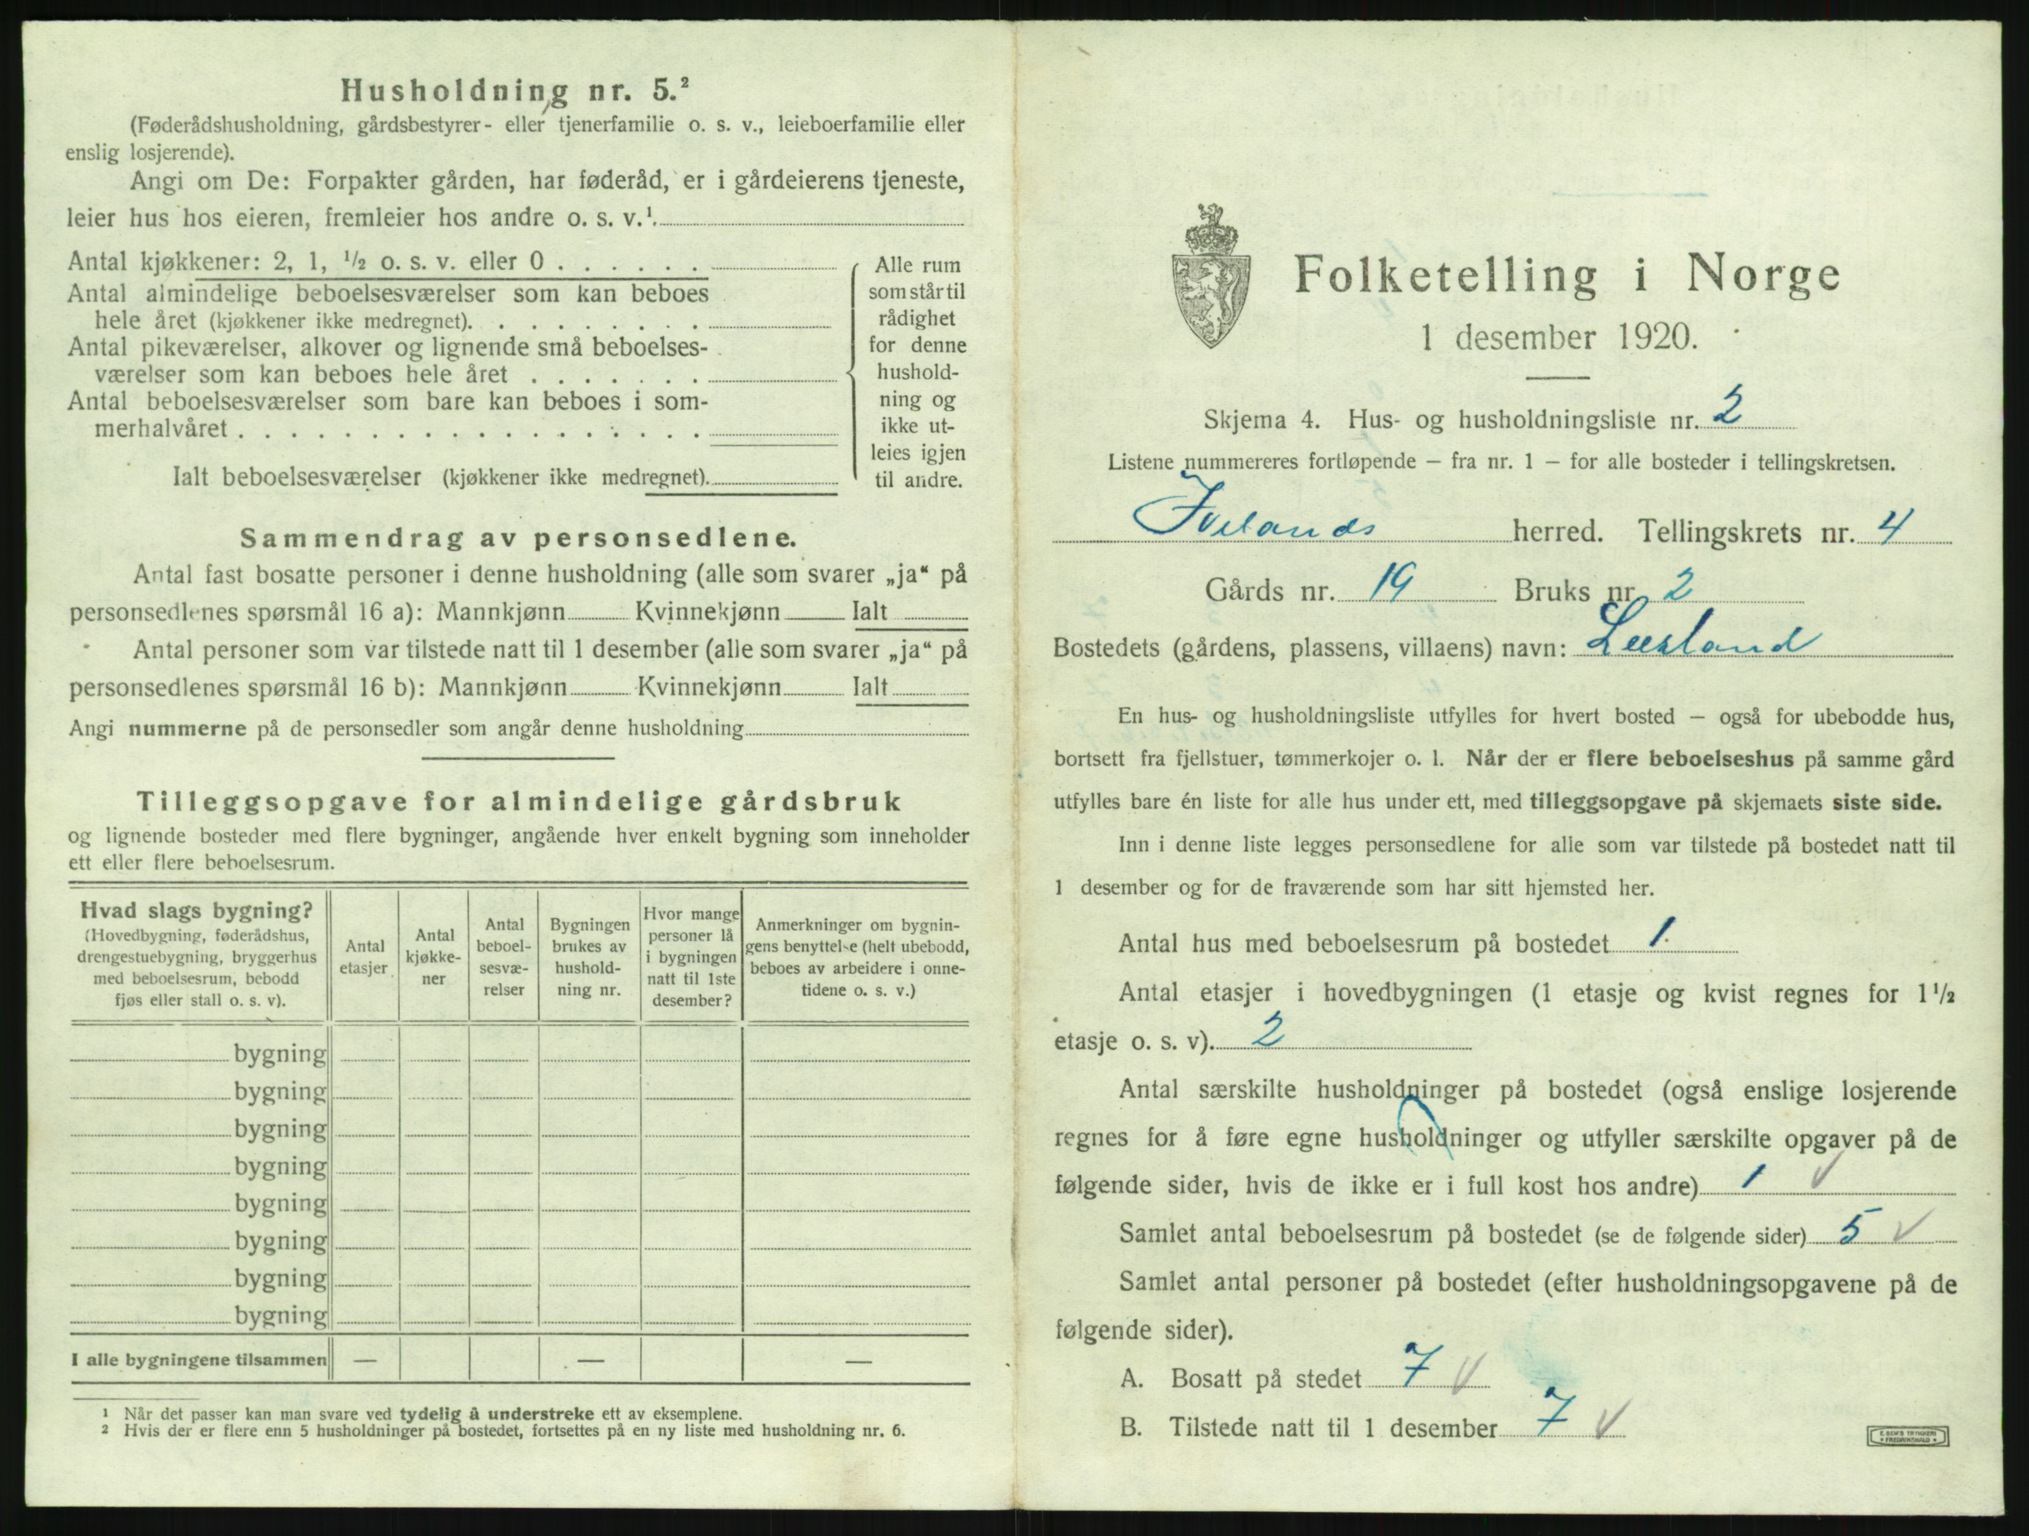 Husholdning nr. 5.²
(Føderådshusholdning, gårdsbestyrer- eller tjenerfamilie o. s. v., leieboerfamilie eller
enslig losjerende).
Angi om De: Forpakter gården, har føderåd, er i gårdeierens tjeneste,
leier hus hos eieren, fremleier hos andre o. s. v.¹.
Antal kjøkkener: 2, 1, ½ o. s. v. eller 0 . . . . . .
Antal almindelige beboelsesværelser som kan beboes
hele året (kjøkkener ikke medregnet). . . . . . . . .
Antal pikeværelser, alkover og lignende små beboelses-
værelser som kan beboes hele året . . . . . . .
Antal beboelsesværelser som bare kan beboes i som-
merhalvåret . . . . . . . . . . . . . . . . . .
Ialt beboelsesværelser (kjøkkener ikke medregnet).
Alle rum
som står til
rådighet
for denne
hushold-
ning og
ikke ut-
leies igjen
til andre.
Sammendrag av personsedlene.
Antal fast bosatte personer i denne husholdning (alle som svarer „ja“ på
personsedlenes spørsmål 16 a): Mannkjønn Kvinnekjønn Ialt
Antal personer som var tilstede natt til 1 desember (alle som svarer „ja“ på
personsedlenes spørsmål 16 b): Mannkjønn Kvinnekjønn Ialt
Angi nummerne på de personsedler som angår denne husholdning
Tilleggsopgave for almindelige gårdsbruk
og lignende bosteder med flere bygninger, angående hver enkelt bygning som inneholder
ett eller flere beboelsesrum.
Hvad slags bygning?
(Hovedbygning, føderådshus,
drengestuebygning, bryggerhus
med beboelsesrum, bebodd
fjøs eller stall o. s. v).
Antal
etasjer
Antal
kjøkke-
ner
Antal
beboel-
sesvæ-
relser
Bygningen
brukes av
hushold-
ning nr.
Hvor mange
personer lå
i bygningen
natt til 1ste
desember?
Anmerkninger om bygnin-
gens benyttelse (helt ubebodd,
beboes av arbeidere i onne-
tidene o. s. v.)
bygning
bygning
bygning
bygning
bygning
bygning
bygning
bygning
I alle bygningene tilsammen — — —
¹ Når det passer kan man svare ved tydelig å understreke ett av eksemplene.
² Hvis der er flere enn 5 husholdninger på bostedet, fortsettes på en ny liste med husholdning nr. 6.
Folketelling i Norge
1 desember 1920.
Skjema 4. Hus- og husholdningsliste nr. 2
Listene nummereres fortløpende – fra nr. 1 – for alle bosteder i tellingskretsen.
Ivelands herred. Tellingskrets nr. 4
Gårds nr. 19 Bruks nr. 2
Bostedets (gårdens, plassens, villaens) navn:
En hus- og husholdningsliste utfylles for hvert bosted – også for ubebodde hus,
bortsett fra fjellstuer, tømmerkojer o. l. Når der er flere beboelseshus på samme gård
utfylles bare én liste for alle hus under ett, med tilleggsopgave på skjemaets siste side.
Inn i denne liste legges personsedlene for alle som var tilstede på bostedet natt til
1 desember og for de fraværende som har sitt hjemsted her.
Antal hus med beboelsesrum på bostedet 1.
Antal etasjer i hovedbygningen (1 etasje og kvist regnes for 1½
etasje o. s. v). 2
Antal særskilte husholdninger på bostedet (også enslige losjerende
regnes for å føre egne husholdninger og utfyller særskilte opgaver på de
følgende sider, hvis de ikke er i full kost hos andre) 1 √
Samlet antal beboelsesrum på bostedet (se de følgende sider) 5 √
Samlet antal personer på bostedet (efter husholdningsopgavene på de
følgende sider).
A. Bosatt på stedet 7 √
B. Tilstede natt til 1 desember 7 √